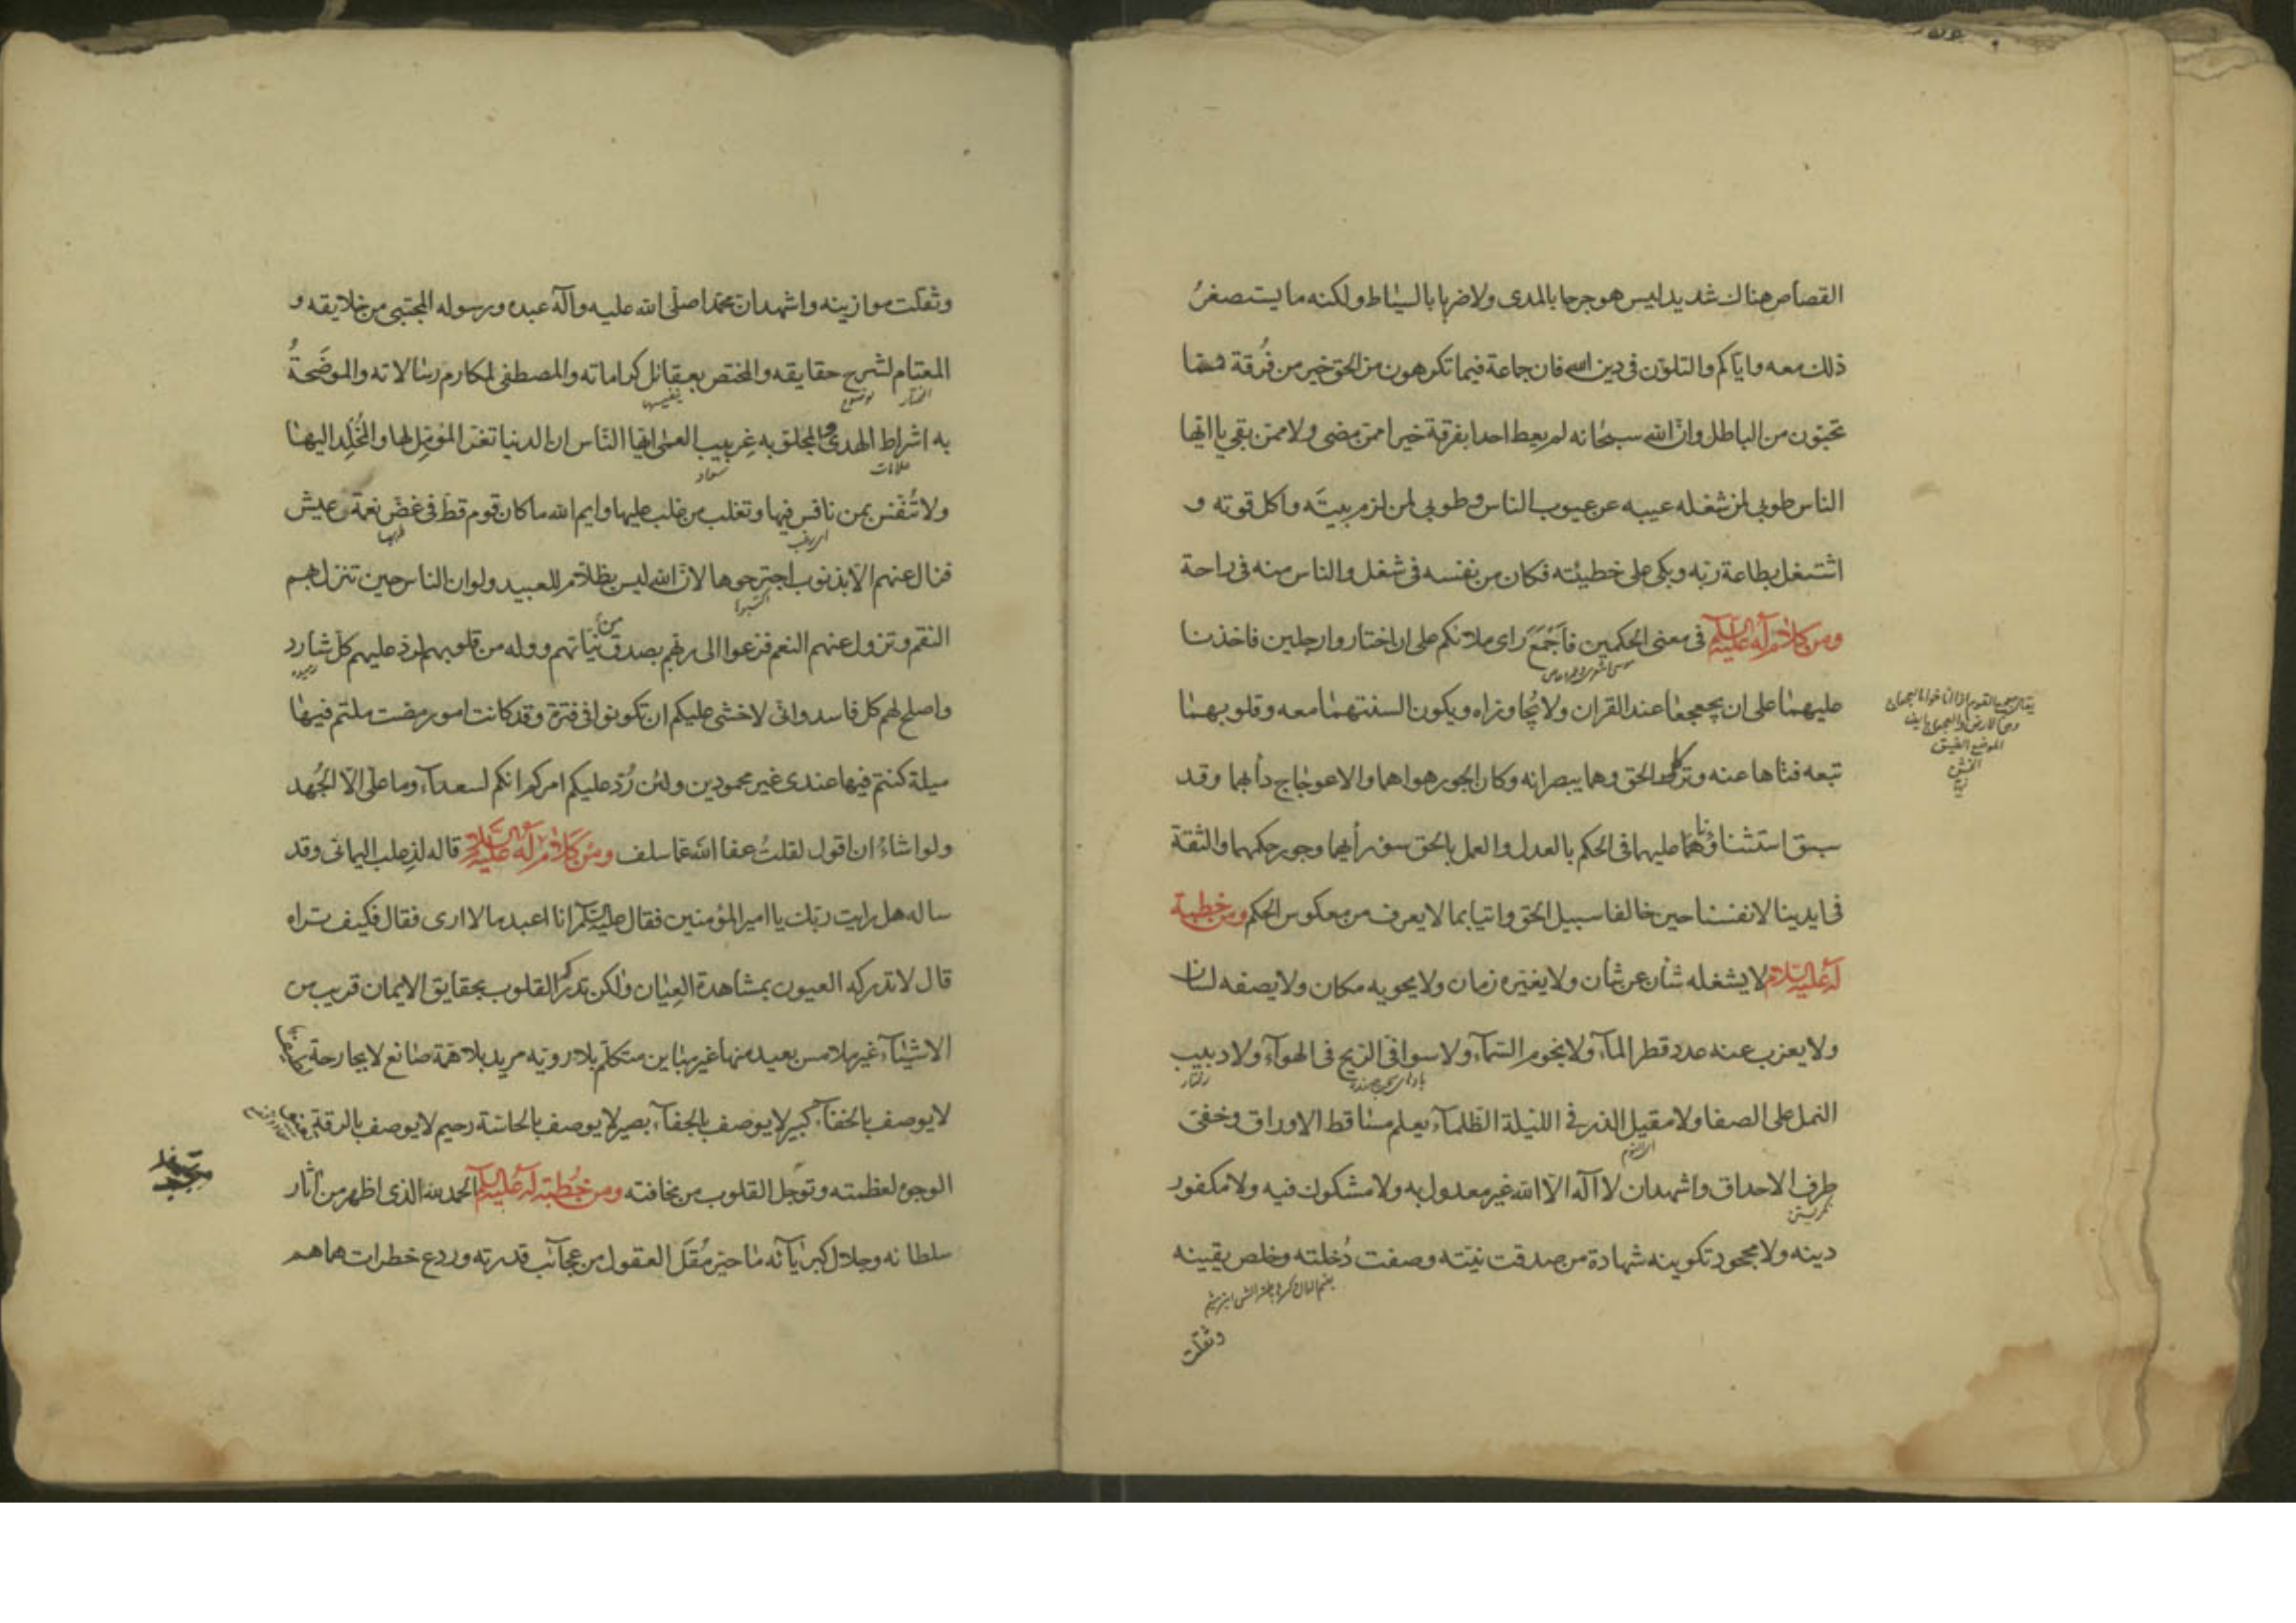 القصاص هناك شديد ليس هو جرحا بالمدى ولا ضربا بالسياط ولكنه ما يستصغرُ
ذلك معه واياكم والتلون فى دين الله فان جماعة فيما تكرهون من الحق خير من فُرقة فيما
تحبون من الباطل وان الله سبحانه لم يعط احدا بفرقة خيرا ممن مضى ولا ممن بقى يا ايها
الناس طوبى لمن شغله عيبه عن عيوب الناس وطوبى لمن لزم بيته واكل قوته و
اشتغل بطاعة ربه وبكى على خطيئته فكان من نفسه فى شغل والناس منه فى راحة
ومن كلام له عليه السلام فى معنى الحكمين فاجمع راى ملائكم على ان اختاروا رجلين فاخذنا
عليهما على ان يجعجعا عند القران ولا يُجاوزاه ويكون السنتهما معه وقلوبهما
تبعه فتاها عنه وتركا الحق وهما يبصرانه وكان الجور هواهما والاعوجاج دأبهما وقد
سبق استثناؤنا عليهما فى الحكم بالعدل والعمل بالحق سوء رأيهما وجور حكمهما والثقة
فى ايدينا لانفسنا حين خالفا سبيل الحق واتيا بما لا يعرف من معكوس الحكم ومن خطبة
له عليه السلام لا يشغله شأن عن شأن ولا يغيره زمان ولا يحويه مكان ولا يصفه لسان
ولا يعزب عنه عدد قطر المآء ولا نجوم السمآء ولا سوافى الريح فى الهوآء ولا دبيب
رفتار
النمل على الصفا ولا مقيل الذر فى الليلة الظلمآء يعلم مساقط الاوراق وخفى
طرف الاحداق واشهد ان لا اله الا الله غير معدول به ولا مشكوك فيه ولا مكفور
نكريستن
دينه ولا مجحود تكوينه شهادة من صدقت نيته وصفت دُخلته وخلص يقينه
وثقلت
وثقلت موازينه واشهد ان محمدا صلى الله عليه وآله عبده ورسوله المجتبى من خلايقه و
المعتام لشرح حقايقه والمختص بعقائل كراماته والمصطفى لمكارم رسالاته والموضَحةُ
المختار
به اشراط الهدى والمجلو به غِربيب العمى ايها الناس ان الدنيا تغر المؤمل لها والمُخلِد اليها
علامات سواد
ولا تُنفس بمن نافس فيها وتغلب من غلب عليها وايم الله ما كان قوم قط فى غض نعمة من عيش
فزال عنهم الا بذنوب اجترحوها لان الله ليس بظلام للعبيد ولو ان الناس حين تنزل بهم
اكتسبوا
النقم وتزول عنهم النعم فزعوا الى ربهم بصدق من نياتهم ووله من قلوبهم لرد عليهم كل شارد
واصلح لهم كل فاسد وانى لاخشى عليكم ان تكونوا فى فترة وقد كانت امور مضت ملتم فيها
ميلة كنتم فيها عندى غير محمودين ولئن رُدّ عليكم امركم انكم لسعدآء وما على الا الجُهد
ولو اشاءُ ان اقول لقلتُ عفا الله عما سلف ومن كلام له عليه السلام قاله لذعلب اليمانى وقد
ساله هل رايت ربك يا امير المؤمنين فقال عليه السلام انا اعبد ما لا ارى فقال فكيف تراه
قال لا تدركه العيون بمشاهدة العِيان ولكن تدركه القلوب بحقايق الايمان قريب من
الاشيآء غير ملامس بعيد منها غير مباين متكلم بلا روية مريد بلا همة صانع لا بجارحة
لا يوصف بالخفآء كبير لا يوصف بالجفآء بصير لا يوصف بالحاسة رحيم لا يوصف بالرقة
الوجوه لعظمته وتوجل القلوب من مخافته ومن خُطبة له عليه السلام الحمد لله الذى اظهر من اثار
سلطانه وجلال كبريآئه ما حير مُقَل العقول من عجآئب قدرته وردع خطرات هماهم